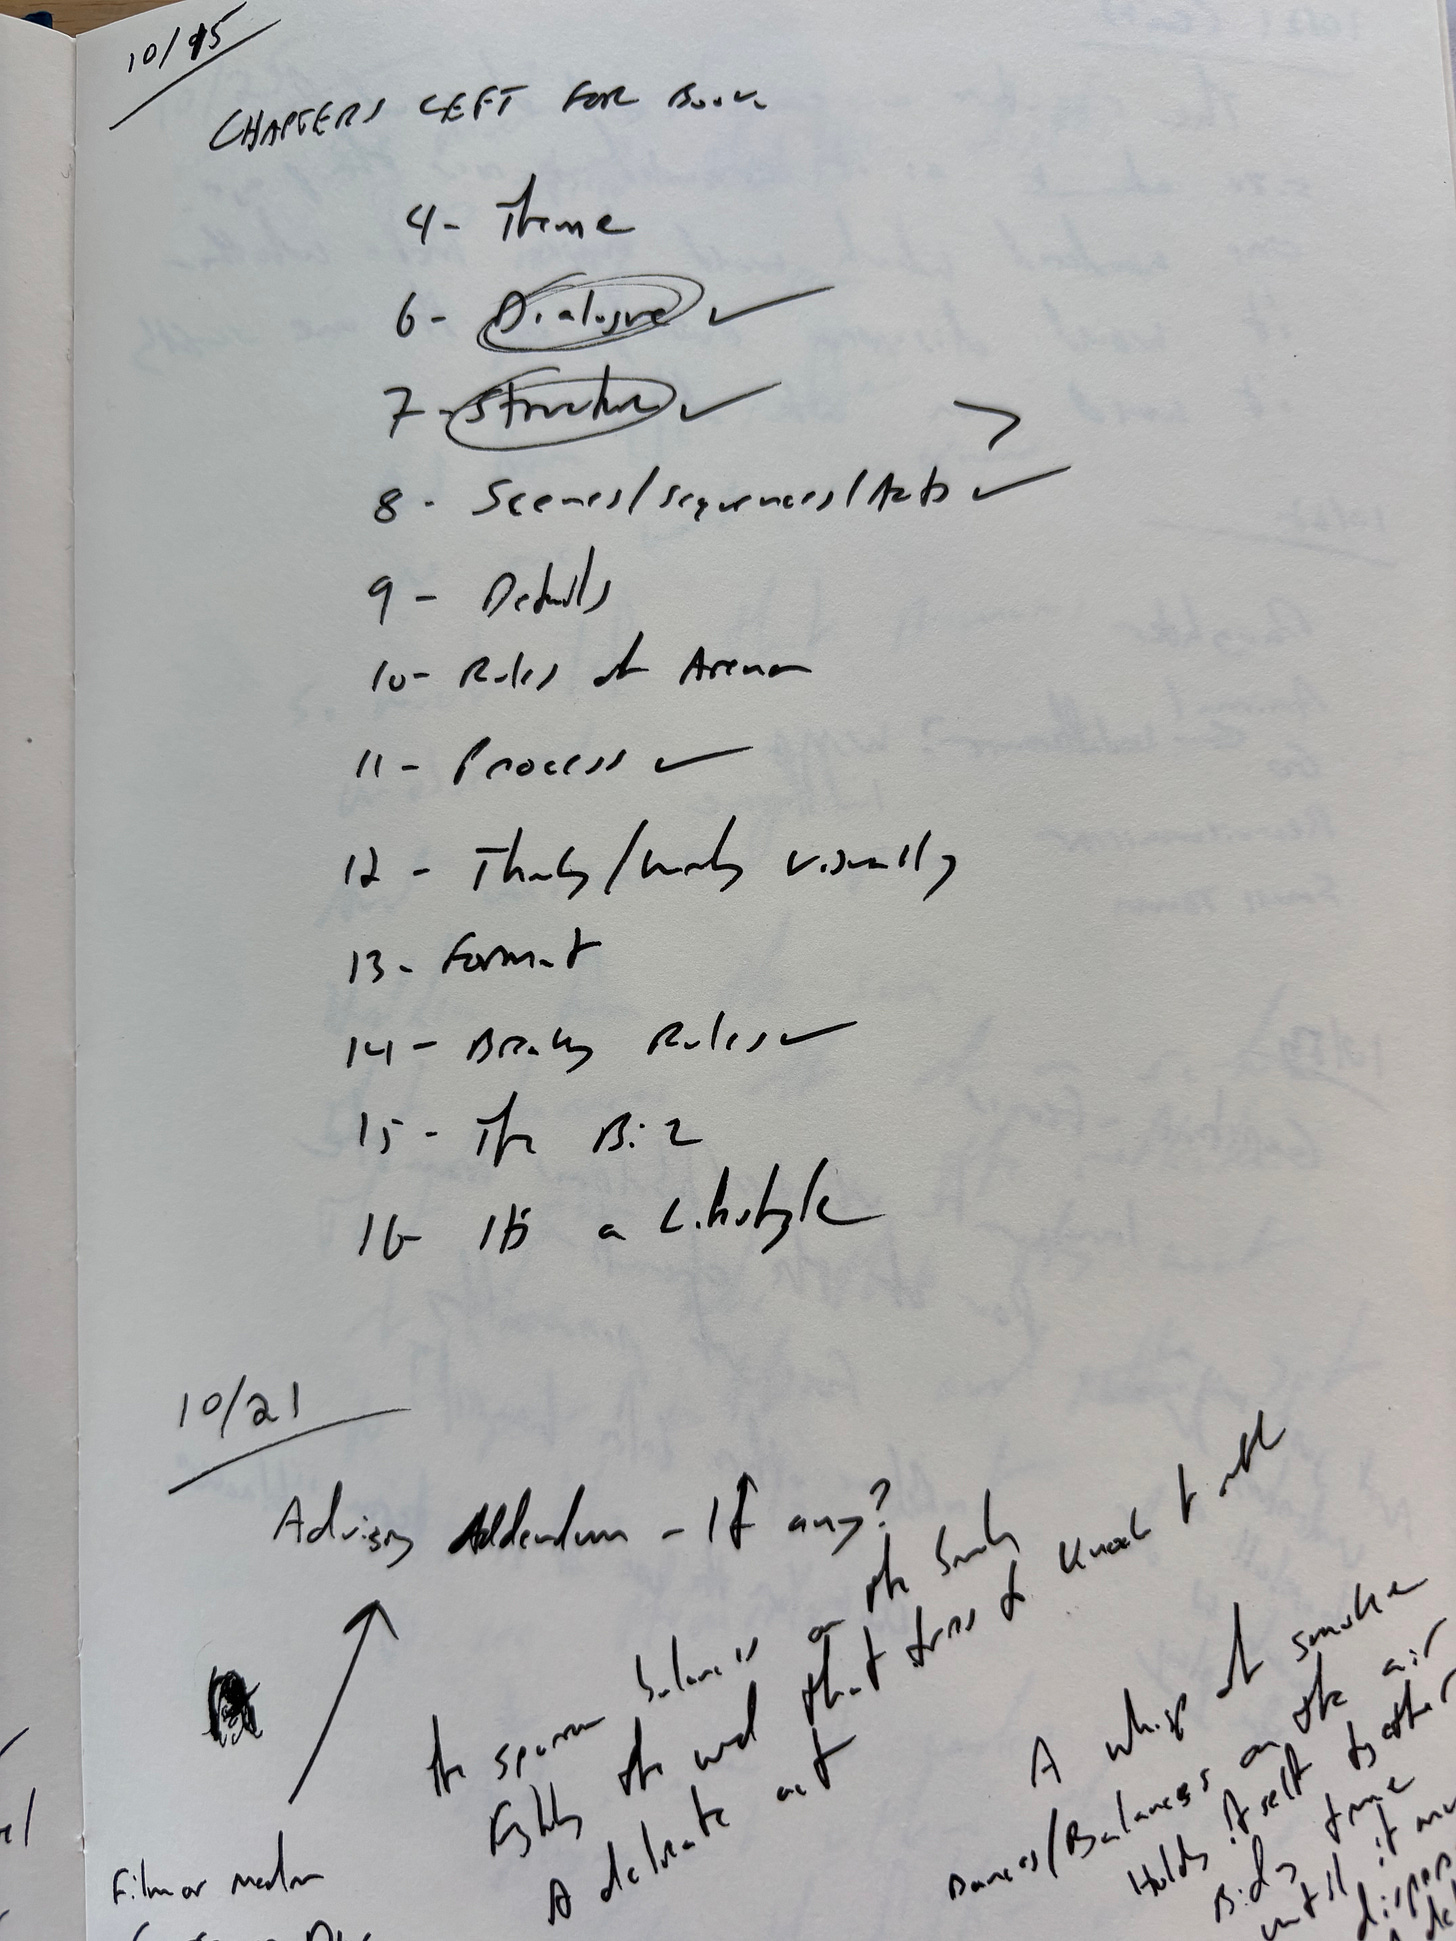 10/15
CHAPTERS LEFT FOR BOOK
4 - Theme
6 - Dialogue ✓
7 - Structure ✓
>
8 - Scenes/sequences/Acts ✓
9 - Details
10 - Rules of Arena
11 - Process ✓
12 - Thinking/writing visually
13 - Format
14 - Breaking Rules ✓
15 - The Biz
16 - It's a Lifestyle
10/21
Advisory Addendum - If any?
the sparrow balances on the branch
Fighting the wind that tries to knock it off
A delicate act
A whisp of smoke
Dances/Balances on the air
Holds itself together
Bids time
until it
Film or